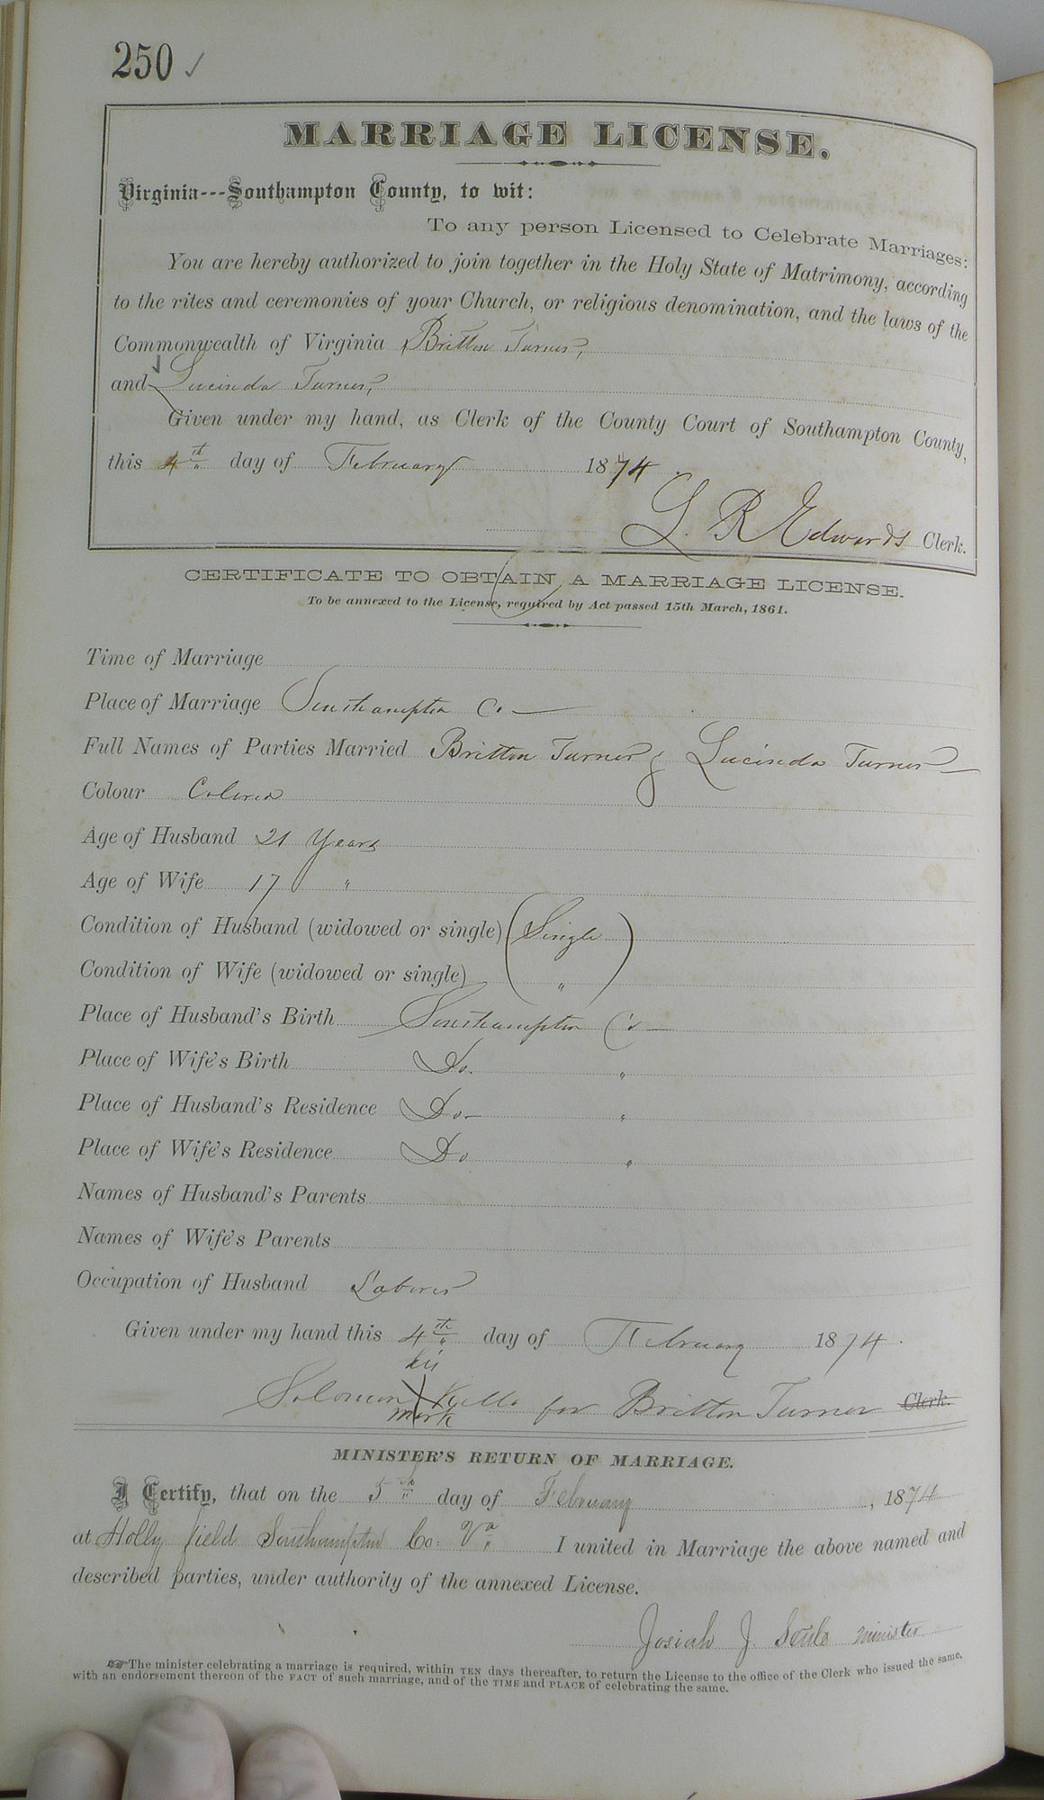 250 ✓
MARRIAGE LICENSE.
Virginia---Southampton County, to wit:
To any person Licensed to Celebrate Marriages:
You are hereby authorized to join together in the Holy State of Matrimony, according
to the rites and ceremonies of your Church, or religious denomination, and the laws of the
Commonwealth of Virginia Britton Turner,
and Lucinda Turner,
Given under my hand, as Clerk of the County Court of Southampton County,
this 4th day of February 1874.
L. R Edwards Clerk.
CERTIFICATE TO OBTAIN A MARRIAGE LICENSE.
To be annexed to the License, required by Act passed 15th March, 1861.
Time of Marriage
Place of Marriage Southampton Co. —
Full Names of Parties Married Britton Turner & Lucinda Turner —
Colour Colored
Age of Husband 21 Years
Age of Wife 17 "
Condition of Husband (widowed or single) (Single)
Condition of Wife (widowed or single) "
Place of Husband's Birth Southampton Co —
Place of Wife's Birth Do. "
Place of Husband's Residence Do — "
Place of Wife's Residence Do "
Names of Husband's Parents
Names of Wife's Parents
Occupation of Husband Laborer
Given under my hand this 4th day of February 1874.
his
Solomon X for Britton Turner Clerk.
mark
MINISTER'S RETURN OF MARRIAGE.
I Certify, that on the 5th day of February, 1874
at Holly field Southampton Co. Va I united in Marriage the above named and
described parties, under authority of the annexed License.
Josiah J. minister
☞ The minister celebrating a marriage is required, within TEN days thereafter, to return the License to the office of the Clerk who issued the same,
with an endorsement thereon of the FACT of such marriage, and of the TIME and PLACE of celebrating the same.